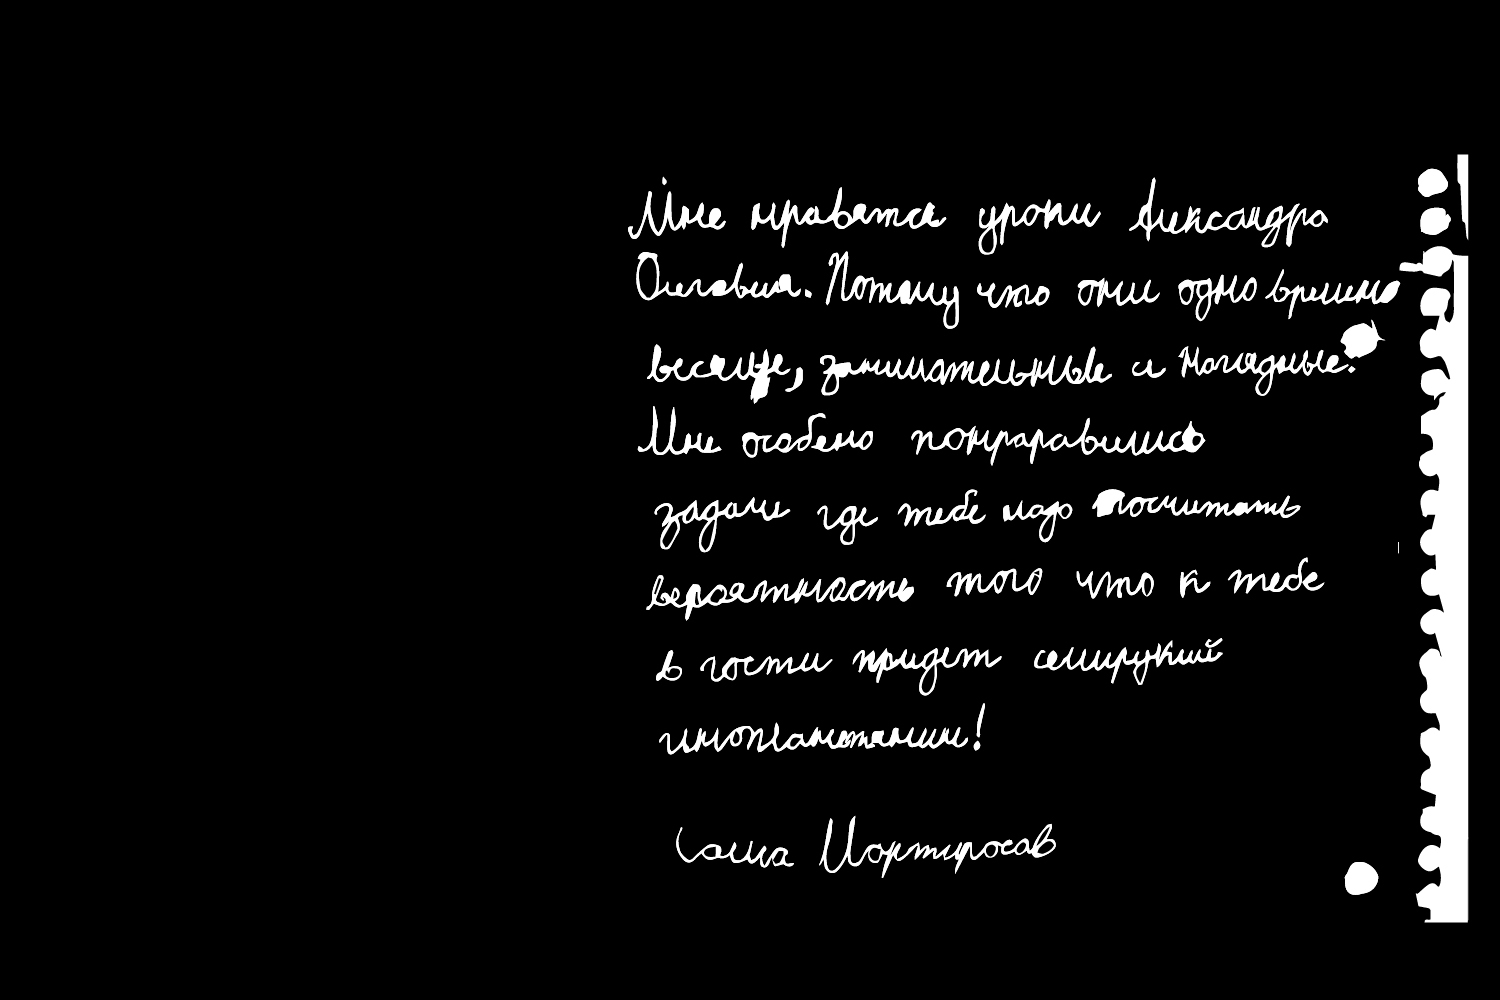 Мне нравятся уроки Александра
Олеговича. Потому что они одновремено
веселые, занимательные и наглядные.
Мне особено понраравились
задачи где тебе надо посчитать
вероятность того что к тебе
в гости придет семирукий
инопланетянин!
Саша Мартиросов